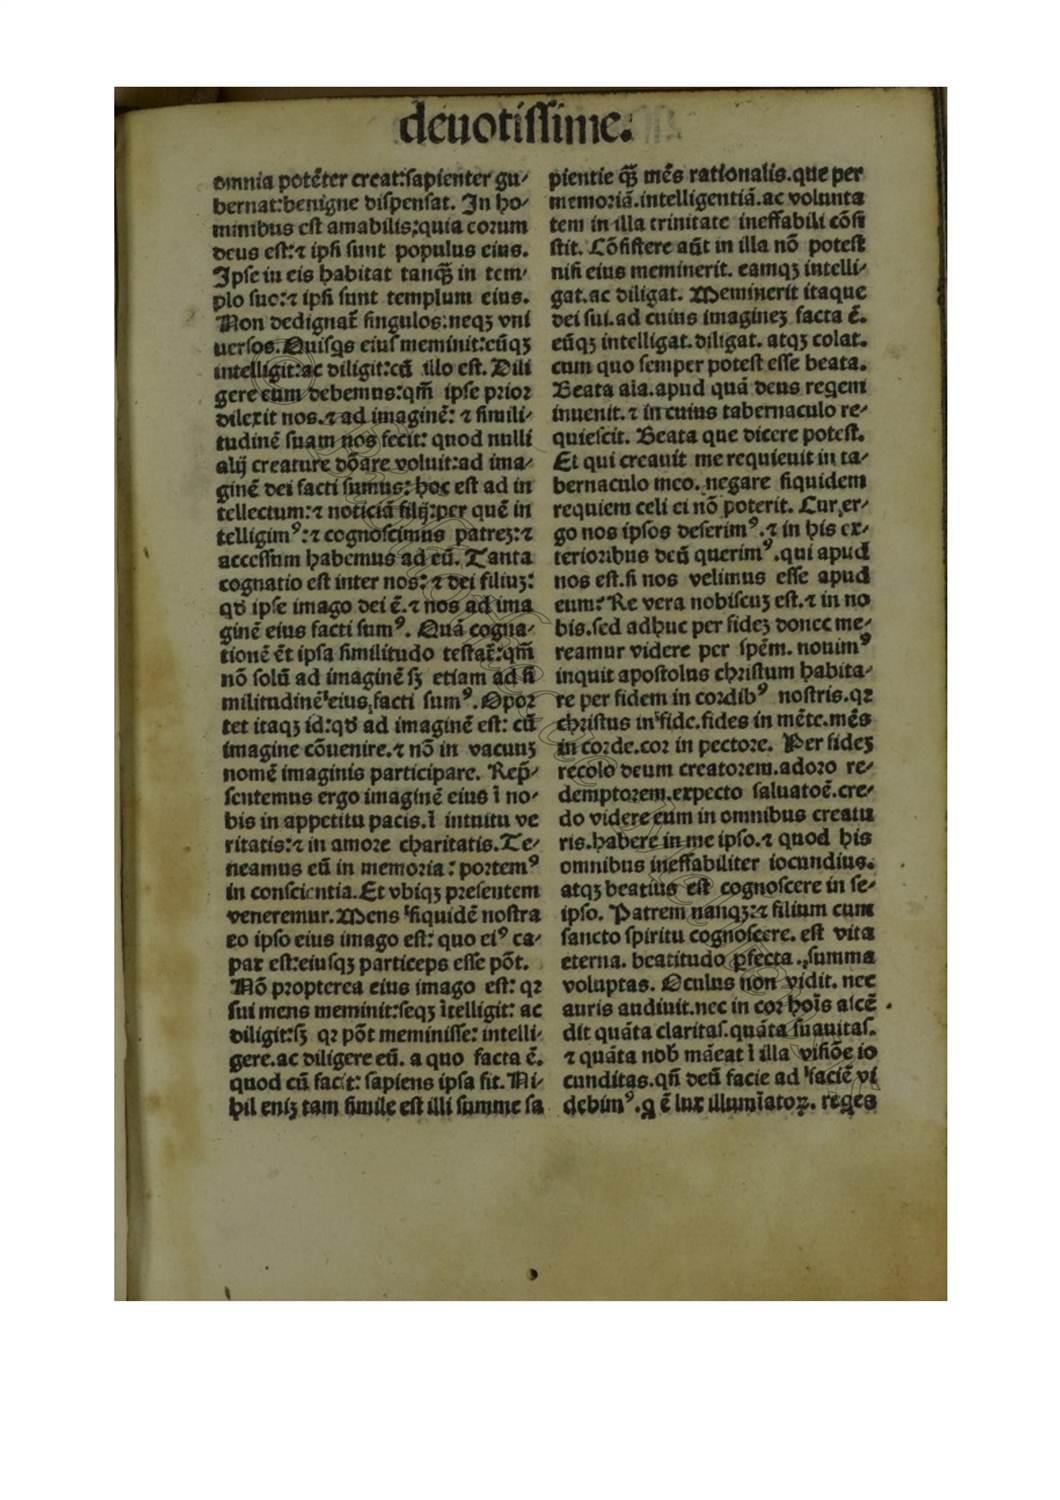 deuotissime.
omnia potẽter creat:sapienter gu⸗
bernat:benigne dispensat. In ho⸗
minibus est amabilis:quia eorum
deus est:⁊ ipsi sunt populus eius.
Ipse in eis habitat tanqȝ̃ in tem⸗
plo suo:⁊ ipsi sunt templum eius.
Non dedignat̃ singulos:neqȝ vni
uersos.Quisqs eius meminit:eũqȝ
intelligit:ac diligit:cũ illo est. Dili
gere eum debemus:qm̃ ipse prior
dilexit nos.⁊ ad imaginẽ: ⁊ simili⸗
tudinẽ suam nos fecit: quod nulli
alij creature dõare voluit:ad ima⸗
ginẽ dei facti sumus: hoc est ad in
tellectum:⁊ noticiã filij:per quẽ in
telligimꝰ:⁊ cognoscimus patreȝ:⁊
accessum habemus ad eũ. Tanta
cognatio est inter nos: ⁊ dei filiuȝ:
qđ ipse imago dei ẽ.⁊ nos ad ima
ginẽ eius facti sumꝰ. Quã cogna⸗
tionẽ ẽt ipsa similitudo testat̃:qm̃
nõ solũ ad imaginẽ sȝ etiam ad si
militudinẽ eius facti sumꝰ.Opor
tet itaqȝ id:qđ ad imaginẽ est: cũ
imagine cõuenire.⁊ nõ in vacuuȝ
nomẽ imaginis participare. Rep̃⸗
sentemus ergo imaginẽ eius ĩ no⸗
bis in appetitu pacis.ĩ intuitu ve
ritatis:⁊ in amore charitatis.Te⸗
neamus eũ in memoria: portemꝰ
in conscientia.Et vbiqȝ presentem
veneremur.Mens siquidẽ nostra
eo ipso eius imago est: quo eiꝰ ca⸗
pax est:eiusqȝ particeps esse põt.
Nõ propterea eius imago est: qꝛ
sui mens meminit:seqȝ ĩtelligit: ac
diligit:sȝ qꝛ põt meminisse: intelli⸗
gere.ac diligere eũ. a quo facta ẽ.
quod cũ facit: sapiens ipsa fit.Ni⸗
hil eniȝ tam simile est illi summe sa
pientie qȝ̃ mẽs rationalis.que per
memoriã.intelligentiã.ac volunta
tem in illa trinitate ineffabili cõsi
stit. Cõsistere aũt in illa nõ potest
nisi eius meminerit. eamqȝ intelli⸗
gat.ac diligat. Meminerit itaque
dei sui.ad cuius imagineȝ facta ẽ.
eũqȝ intelligat.diligat. atqȝ colat.
cum quo semper potest esse beata.
Beata aĩa.apud quã deus regem
inuenit.⁊ in cuius tabernaculo re⸗
quiescit. Beata que dicere potest.
Et qui creauit me requieuit in ta⸗
bernaculo meo. negare siquidem
requiem celi ei nõ poterit. Cur er⸗
go nos ipsos deserimꝰ.⁊ in his ex⸗
terioribus deũ querimꝰ.qui apud
nos est.si nos velimus esse apud
eum? Re vera nobiscuȝ est.⁊ in no
bis.sed adhuc per fideȝ donec me⸗
reamur videre per spẽm. nouimꝰ
inquit apostolus christum habita⸗
re per fidem in cordibꝰ nostris.qꝛ
christus in fide.fides in mẽte.mẽs
in corde.cor in pectore. Per fideȝ
recolo deum creatorem.adoro re⸗
demptorem.expecto saluatoẽ.cre⸗
do videre eum in omnibus creatu
ris.habere in me ipso.⁊ quod his
omnibus ineffabiliter iocundius.
atqȝ beatius est cognoscere in se⸗
ipso. Patrem nanqȝ:⁊ filium cum
sancto spiritu cognoscere. est vita
eterna. beatitudo ꝑfecta. summa
voluptas. Oculus non vidit. nec
auris audiuit.nec in cor hoĩs ascẽ
dit quãta claritas.quãta suauitas.
⁊ quãta nob̃ mãeat ĩ illa visiõe io
cunditas.qñ deũ facie ad faciẽ vi
debimꝰ.q ẽ lux illumĩatoꝝ. reqes